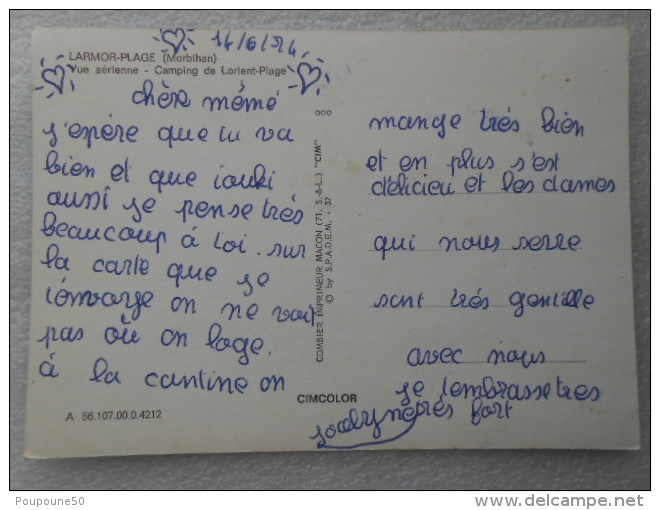 14/6/84
LARMOR-PLAGE (Morbihan)
Vue aérienne - Camping de Lorient-Plage
chère mémé
j'epére que tu va
bien et que iouki
aussi je pense trés
beaucoup á toi. sur
la carte que je
t'émvoege on ne voit
pas oû on loge.
á la cantine on
A 56.107.00.0.4212
ooo
COMBIER IMPRIMEUR MACON (71, S.-&-L.) "CIM"
© by S.P.A.D.E.M. - 37
CIMCOLOR
mange trés bien
et en plus s'est
d'élicieu et les dames
qui nous serre
sont trés gentille
avec nous
je t'embrasse tres
trés fort
Jocelyne
Poupoune50
delcampe.net